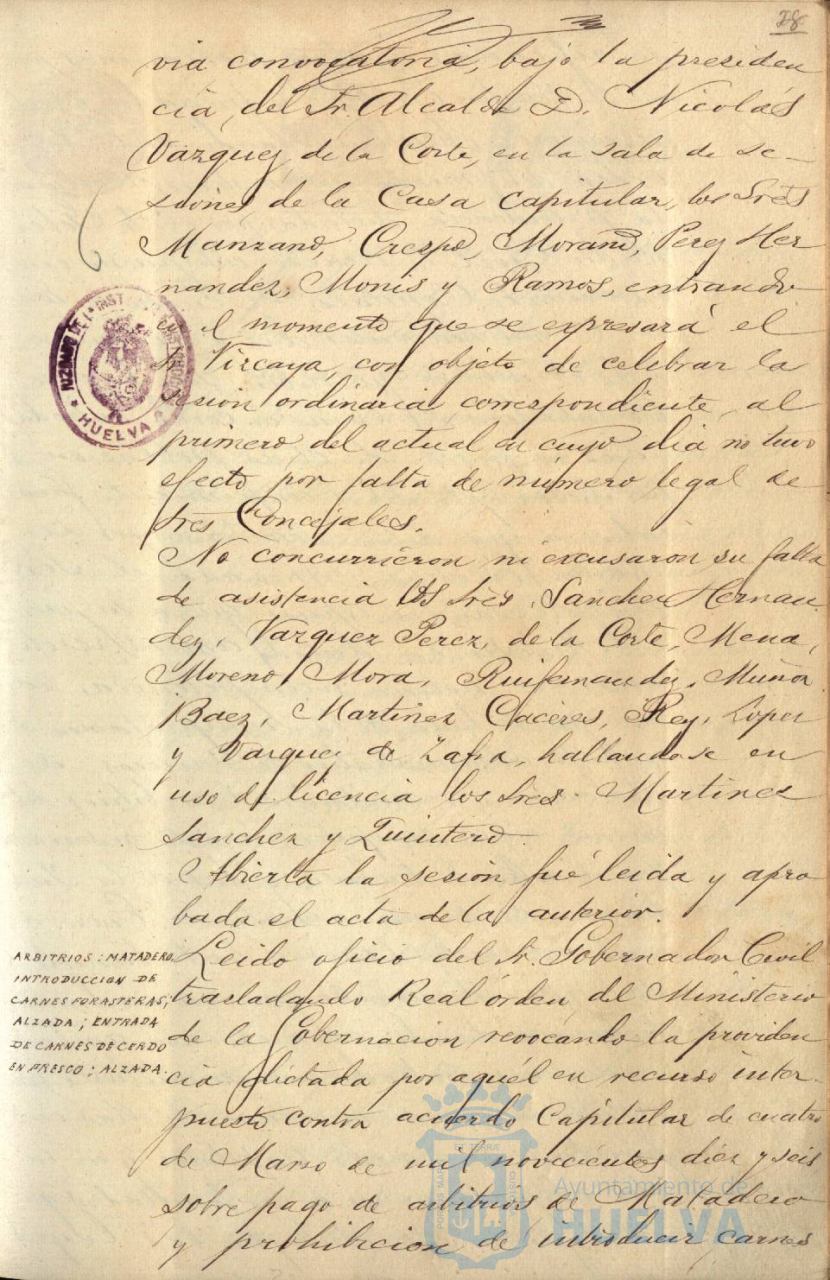 28
via convocatoria, bajo la presiden
cia, del Sr. Alcalde D. Nicolás
Vazquez, de la Corte, en la sala de se-
siones, de la Casa capitular, los Sres
Manzano, Crespo, Morano, Perez Her
nandez, Monis y Ramos, entrando
el momento que se expresará el
Vizcaya, con objeto de celebrar la
sesion ordinaria correspondiente, al
primero del actual en cuyo dia no tuvo
efecto por falta de número legal de
Sres Concejales.
No concurrieron ni excusaron su falta
de asistencia los Sres. Sanchez Hernan
dez, Vazquez Perez, de la Corte, Mena,
Moreno, Mora, Ruifernandez, Muñoz
Baez, Martinez Caceres, Rey, Lopez
y Vazquez de Zafra, hallandose en
uso de licencia los Sres. Martinez
Sanchez y Quintero.
Abierta la sesion fué leida y apro
bada el acta de la anterior.
ARBITRIOS: MATADERO.
INTRODUCCION DE
CARNES FORASTERAS;
ALZADA; ENTRADA
DE CARNES DE CERDO
EN FRESCO; ALZADA.
Leido oficio del Sr. Gobernador Civil
trasladando Real órden, del Ministerio
de la Gobernacion revocando la providen
cia dictada por aquél en recurso inter-
puesto contra acuerdo Capitular de cuatro
de Marzo de mil novecientos diez y seis
sobre pago de arbitrios de Matadero
y prohibicion de introducir carnes
JUZGADO DE 1ª INST
HUELVA
Ayuntamiento de
HUELVA